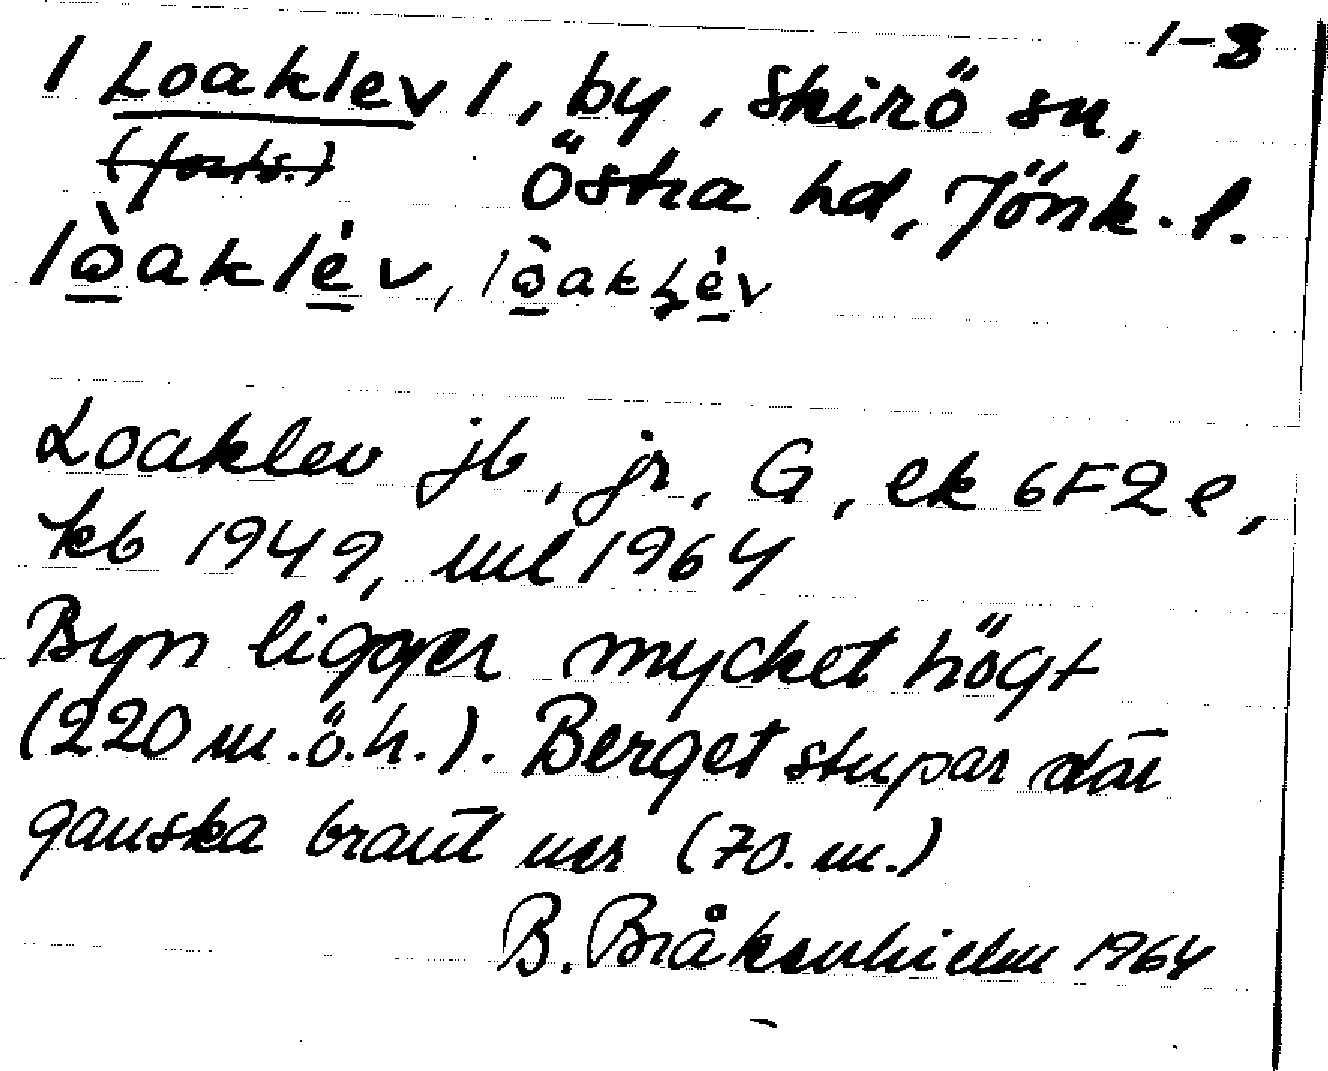 1-3
1 Loaklev 1, by, Skirö sn,
(forts.) Östra hd, Jönk. l.
lòaklév, lòakļév
Loaklev jb, jr, G, ek 6F2e,
kb 1949, ml 1964
Byn ligger mycket högt
(220 m.ö.h.). Berget stupar där
ganska brant ner (70.m.)
B. Bråkenhielm 1964